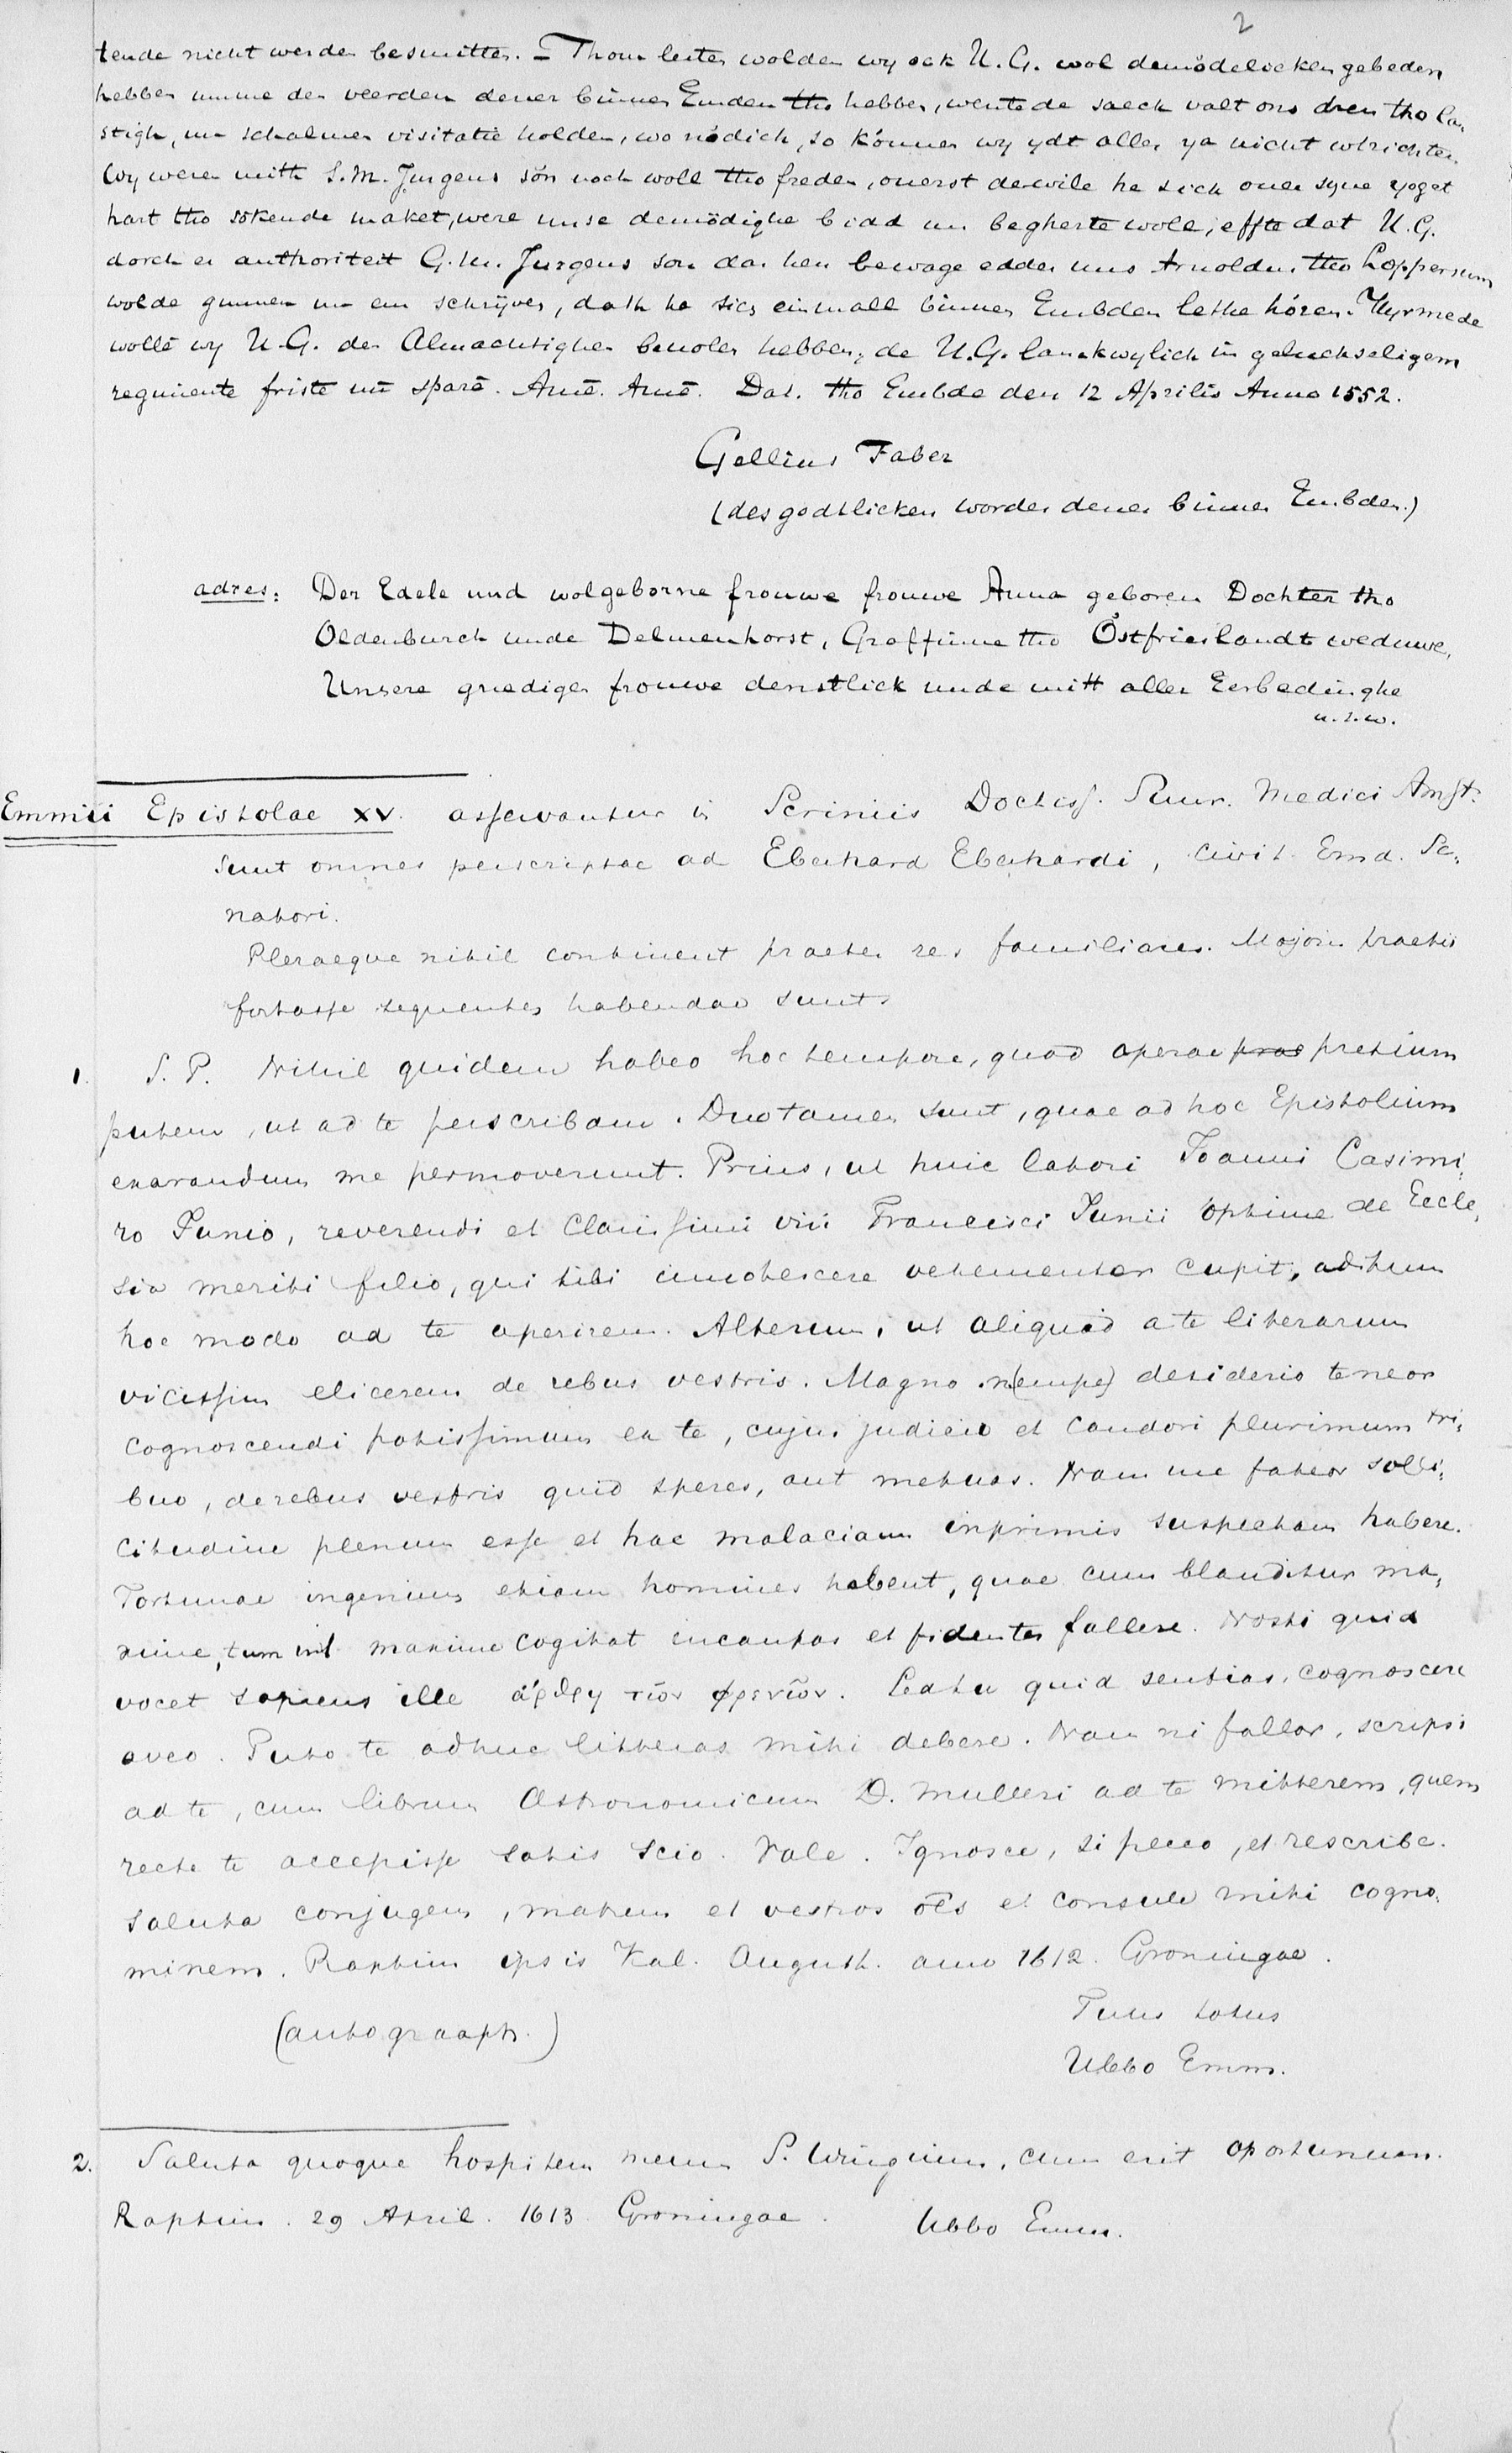 2
tende nicht werden besmitten. – Thom lesten wolden wy ock U. G. wol demödelocken gebeden
hebben umme den veerden dener binnen Emden tho hebben, wente de saeck valt ons dren tho la„
stigh, un scholmen visitatie holden, wo nödich, so können wy ydt alles ya nicht wtrichten
Wy weren mitt S. M. Jurgens sön noch woll tho freden, ouerst derwile he sick ouer syne yoget
hart tho sökende maket, were unse demödighe bidd un begherte wole, effte dat U. G.
dorch er authoriteit G. M. Jurgens son dar hen bewage edder uns Arnoldus tho Loppersum
wolde gunnen un em schrijven, dath he sics einmall binnen Embden lethe hören. Hyrmede
wollē wy U. G. den Almachtighen beuolen hebben, de U. G. lanckwylich in geluckseligem
regimente fristē un sparē. Amē. Amē. Dat. tho Embde den 12 Aprilis Anno 1552.
Gellius Faber
(des godtlicken wordes dener binnen Embden.)
adres: Der Edele und wolgeborne frouwe frouwe Anna geboren Dochter tho
Oldenburch unde Delmenhorst, Greffinne tho Östfrieslandt weduwe,
Unsere gnediger frouwe denstlick unde mitt aller Eerbedinghe
u. s. w.
Emmii Epistolae XV. asservantur in Scriniis Doctiss. Ruur. Medici Amst.
Sunt omnes perscriptae ad Eberhard Eberhardi, Civit. Emd. Se„
natori.
Pleraeque nihil continent praeter res familiares. Majoris pretii
fortasse sequentes habendae sunt.
1. S. P. Nihil quidem habeo hoc tempore, quod operae prae pretium
putem, ut ad te perscribam. Duo tamen sunt, quae ad hoc Epistolium
exarandum me permoverunt. Prius, ut huic latori Joanni Casimi„
ro Junio, reverendi et Clarissimi viri Francisci Junii optime de Eccle„
sia meriti filio, qui tibi innotescere vehementer cupit, aditum
hoc modo ad te aperirem. Alterum, ut aliquid a te literarum
vicissim elicerem de rebus vestris. Magno n(empe) desiderio teneor
cognoscendi potissimum ex te, cujus judicio et candori plurimum tri„
buo, de rebus vestris quid speres, aut metuas. Nam me fateor solli„
citudine plenum esse et hac malaciam inprimis suspectam habere.
Fortunae ingenium etiam homines habent, quae cum blanditur ma„
xime, tum vel maxime cogitat incautos et fidentes fallere. Nosti quid
vocet sapiens ille ἄρθρη τῶν φρενῶν. Ea tu quid sentias, cognoscere
aveo. Puto te adhuc litteras mihi debere. Nam ni fallor, scripsi
ad te, cum librum Astronomicum D. Mulleri ad te mitterem, quem
recte te accepisse satis scio. Vale. Ignosce, si pecco, et rescribe.
Saluta conjugem, matrem et vestros oēs et consule mihi cogno„
minem. Raptim ipsis Kal. August. anno 1612. Groningae.
Tuus totus
(autograaph.)
Ubbo Emm.
2. Saluta quoque hospitem meum P. Wingium, cum erit oportunum.
Raptim. 29 April. 1613 Groningae. Ubbo Emm.